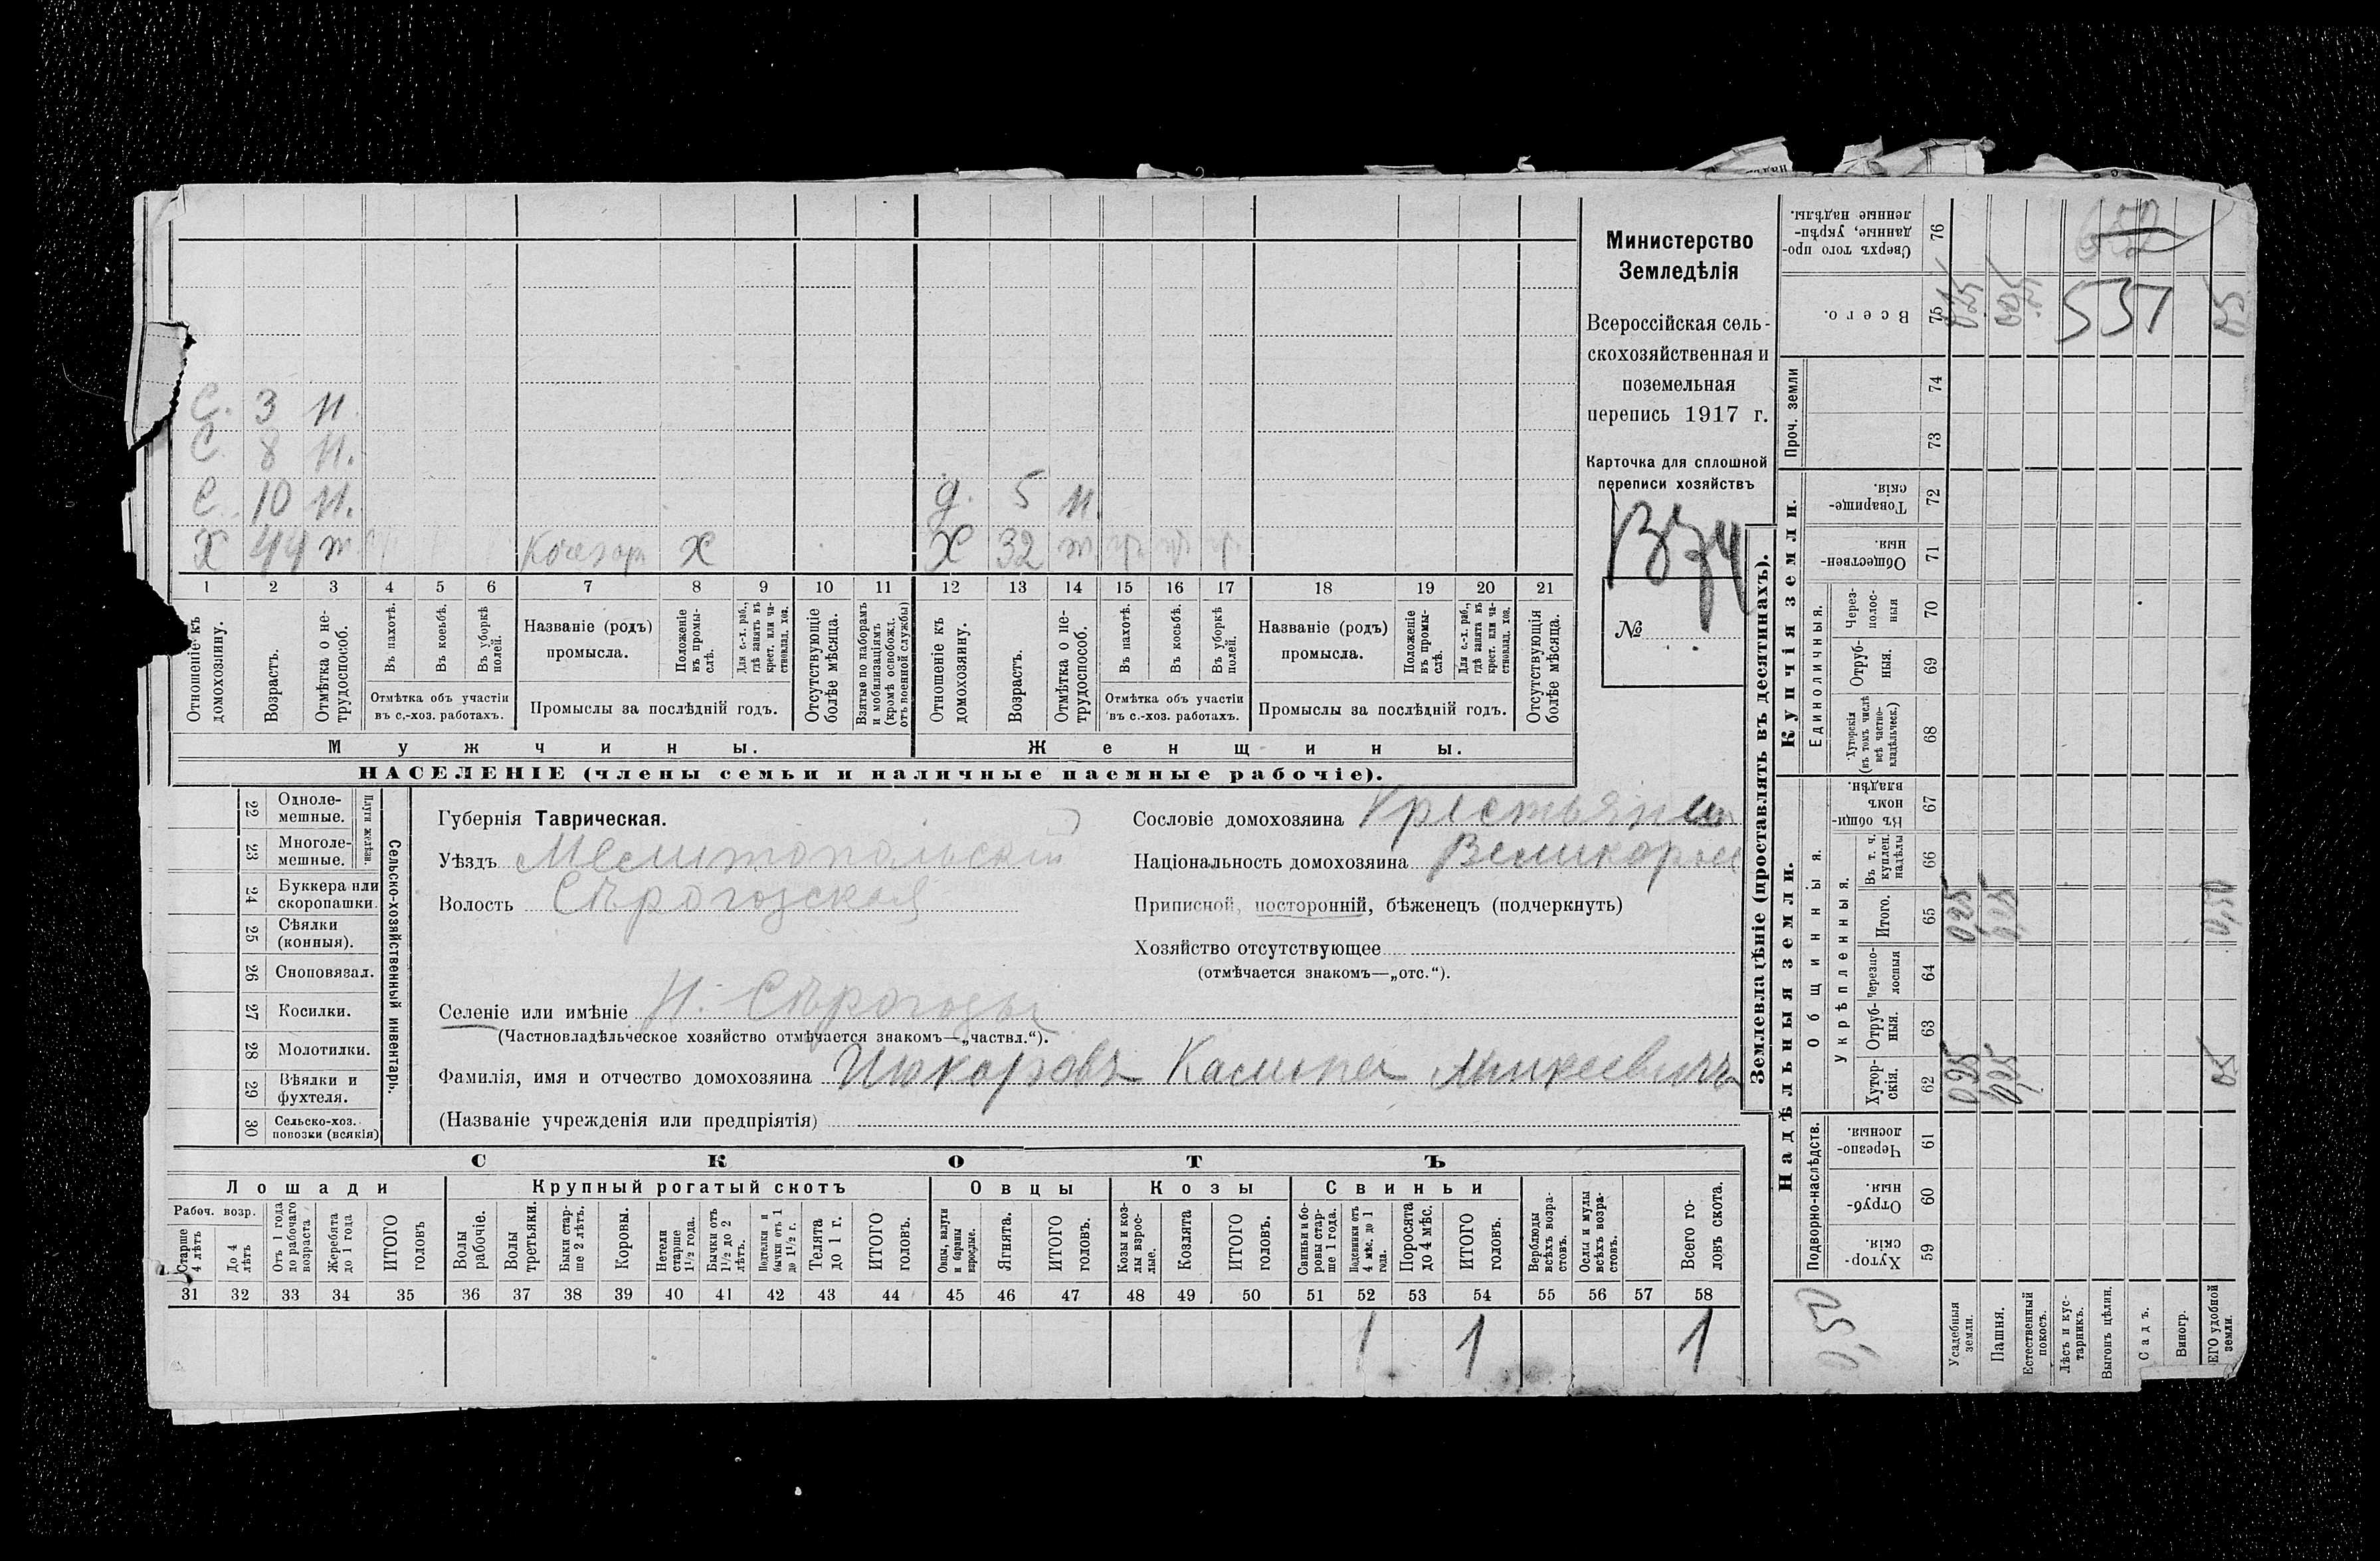 Министерство
Земледѣлія
Всероссійская сель-
скохозяйственная и
поземельная
перепись 1917 г.
Карточка для сплошной
переписи хозяйствъ
№
С. 3 н.
С. 8 н.
С. 10 н.
Х 44 т. Х
д. 5 н.
Х 32 т.
1 2 3 4 5 6 7 8 9 10 11 12 13 14 15 16 17 18 19 20 21
Отношеніе къ домохозяину.
Возрастъ.
Отмѣтка о не-трудоспособ.
Въ пахотѣ.
Въ косьбѣ.
Въ уборкѣ полей.
Отмѣтка объ участіи
въ с.-хоз. работахъ.
Названіе (родъ)
промысла.
Положеніе въ промы-слѣ.
Для с.-х. раб., гдѣ занятъ въ крест. или ча-стновлад. хоз.
Промыслы за послѣдній годъ.
Отсутствующіе болѣе мѣсяца.
Взятые по наборамъ и мобилизаціямъ (кромѣ освобожд. отъ военной службы)
Отношеніе къ домохозяину.
Возрастъ.
Отмѣтка о не-трудоспособ.
Въ пахотѣ.
Въ косьбѣ.
Въ уборкѣ полей.
Отмѣтка объ участіи
въ с.-хоз. работахъ.
Названіе (родъ)
промысла.
Положеніе въ промы-слѣ.
Для с.-х. раб., гдѣ занята въ крест. или ча-стновлад. хоз.
Промыслы за послѣдній годъ.
Отсутствующія болѣе мѣсяца.
Мужчины.
Женщины.
НАСЕЛЕНІЕ (члены семьи и наличные наемные рабочіе).
Сельско-хозяйственный инвентарь.
Плуги желѣзн.
22 Одноле-мешные.
23 Многоле-мешные.
24 Буккера или скоропашки.
25 Сѣялки (конныя).
26 Сноповязал.
27 Косилки.
28 Молотилки.
29 Вѣялки и фухтеля.
30 Сельско-хоз. повозки (всякія)
Губернія Таврическая.
Уѣздъ Мелитопольскій
Волость Сѣрогозская
Селеніе или имѣніе Н. Сѣрогозы
(Частновладѣльческое хозяйство отмѣчается знакомъ—„частвл.“).
Фамилія, имя и отчество домохозяина
(Названіе учрежденія или предпріятія)
Сословіе домохозяина Крестьянин
Національность домохозяина Великорос
Приписной, посторонній, бѣженецъ (подчеркнуть)
Хозяйство отсутствующее
(отмѣчается знакомъ—„отс.“).
СКОТЪ
Лошади
Крупный рогатый скотъ
Овцы
Козы
Свиньи
Рабоч. возр.
Старше 4 лѣтъ
До 4 лѣтъ
Отъ 1 года до рабочаго возраста
Жеребята до 1 года
ИТОГО головъ
Волы рабочіе.
Волы третьяки.
Быки стар-ше 2 лѣтъ.
Коровы.
Нетели старше 1½ года.
Бычки отъ 1½ до 2 лѣтъ.
Подтелки и бычки отъ 1 до 1½ г.
Телята до 1 г.
ИТОГО головъ.
Овцы, валухи и бараны взрослые.
Ягнята.
ИТОГО головъ.
Козы и коз-лы взрос-лые.
Козлята
ИТОГО головъ.
Свиньи и бо-ровы стар-ше 1 года.
Подсвинки отъ 4 мѣс. до 1 года.
Поросята до 4 мѣс.
ИТОГО головъ.
Верблюды всѣхъ возра-стовъ.
Ослы и мулы всѣхъ возра-стовъ.
Всего го-ловъ скота.
31 32 33 34 35 36 37 38 39 40 41 42 43 44 45 46 47 48 49 50 51 52 53 54 55 56 57 58
1 1 1
Землевладѣніе (проставлять въ десятинахъ).
Надѣльныя земли.
Купчія земли.
Проч. земли
Подворно-наслѣдств.
Общинныя.
Укрѣпленныя.
Единоличныя.
Сверхъ того про-данные, укрѣп-ленные надѣлы. 76
Всего. 75
74
73
Товарище-скія. 72
Обществен-ныя. 71
Через-полос-ныя 70
Отруб-ныя. 69
Хуторскія (въ томъ числѣ всѣ частно-владѣльческ.) 68
Въ общи-номъ владѣн. 67
Въ т. ч. куплен. надѣлы 66
Итого. 65
Черезпо-лосныя 64
Отруб-ныя. 63
Хутор-скія. 62
Черезпо-лосныя. 61
Отруб-ныя. 60
Хутор-скія. 59
652
537
0,25
0,25
0,50
0,25
0,25
0,50
Усадебныя земли.
Пашня.
Естественный покосъ.
Лѣсъ и кус-тарникъ.
Выгонъ цѣлин.
Садъ.
Виногр.
ЕГО удобной земли.